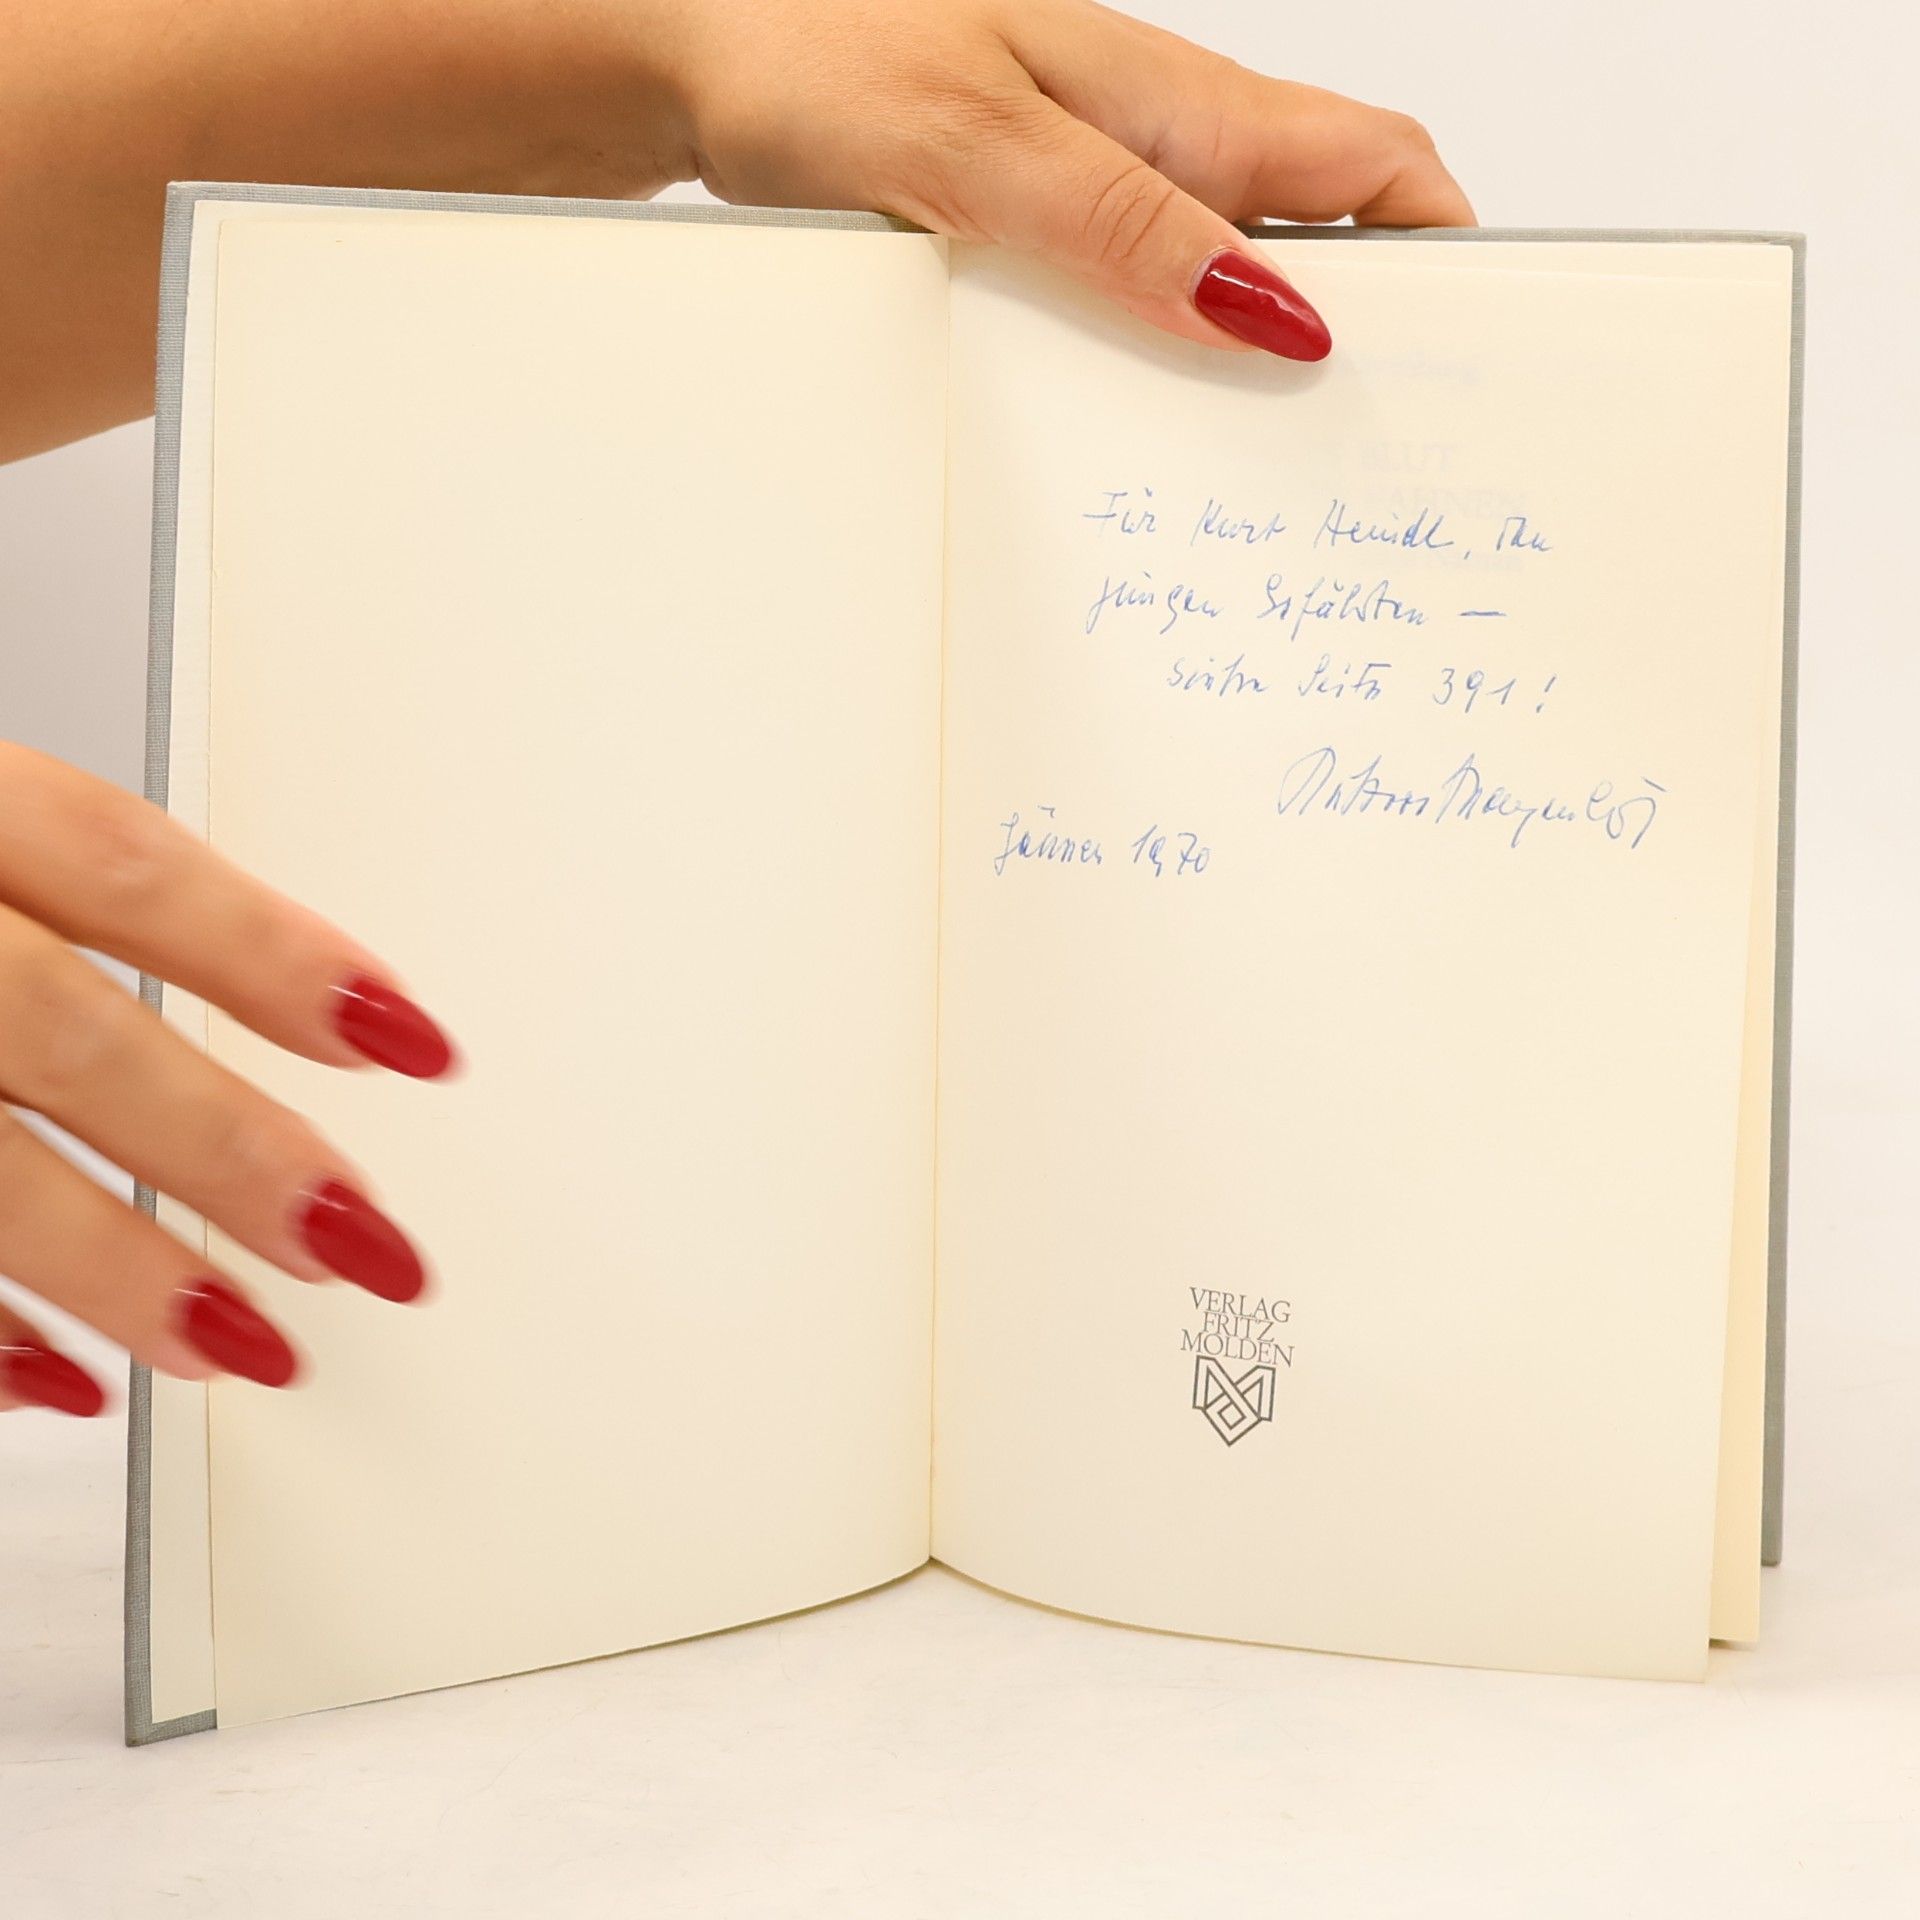 BLUT
FAHNEN
Für Kurt Heindl, den
jungen Gefährten —
siehe Seite 391!
Jänner 1970
VERLAG
FRITZ
MOLDEN